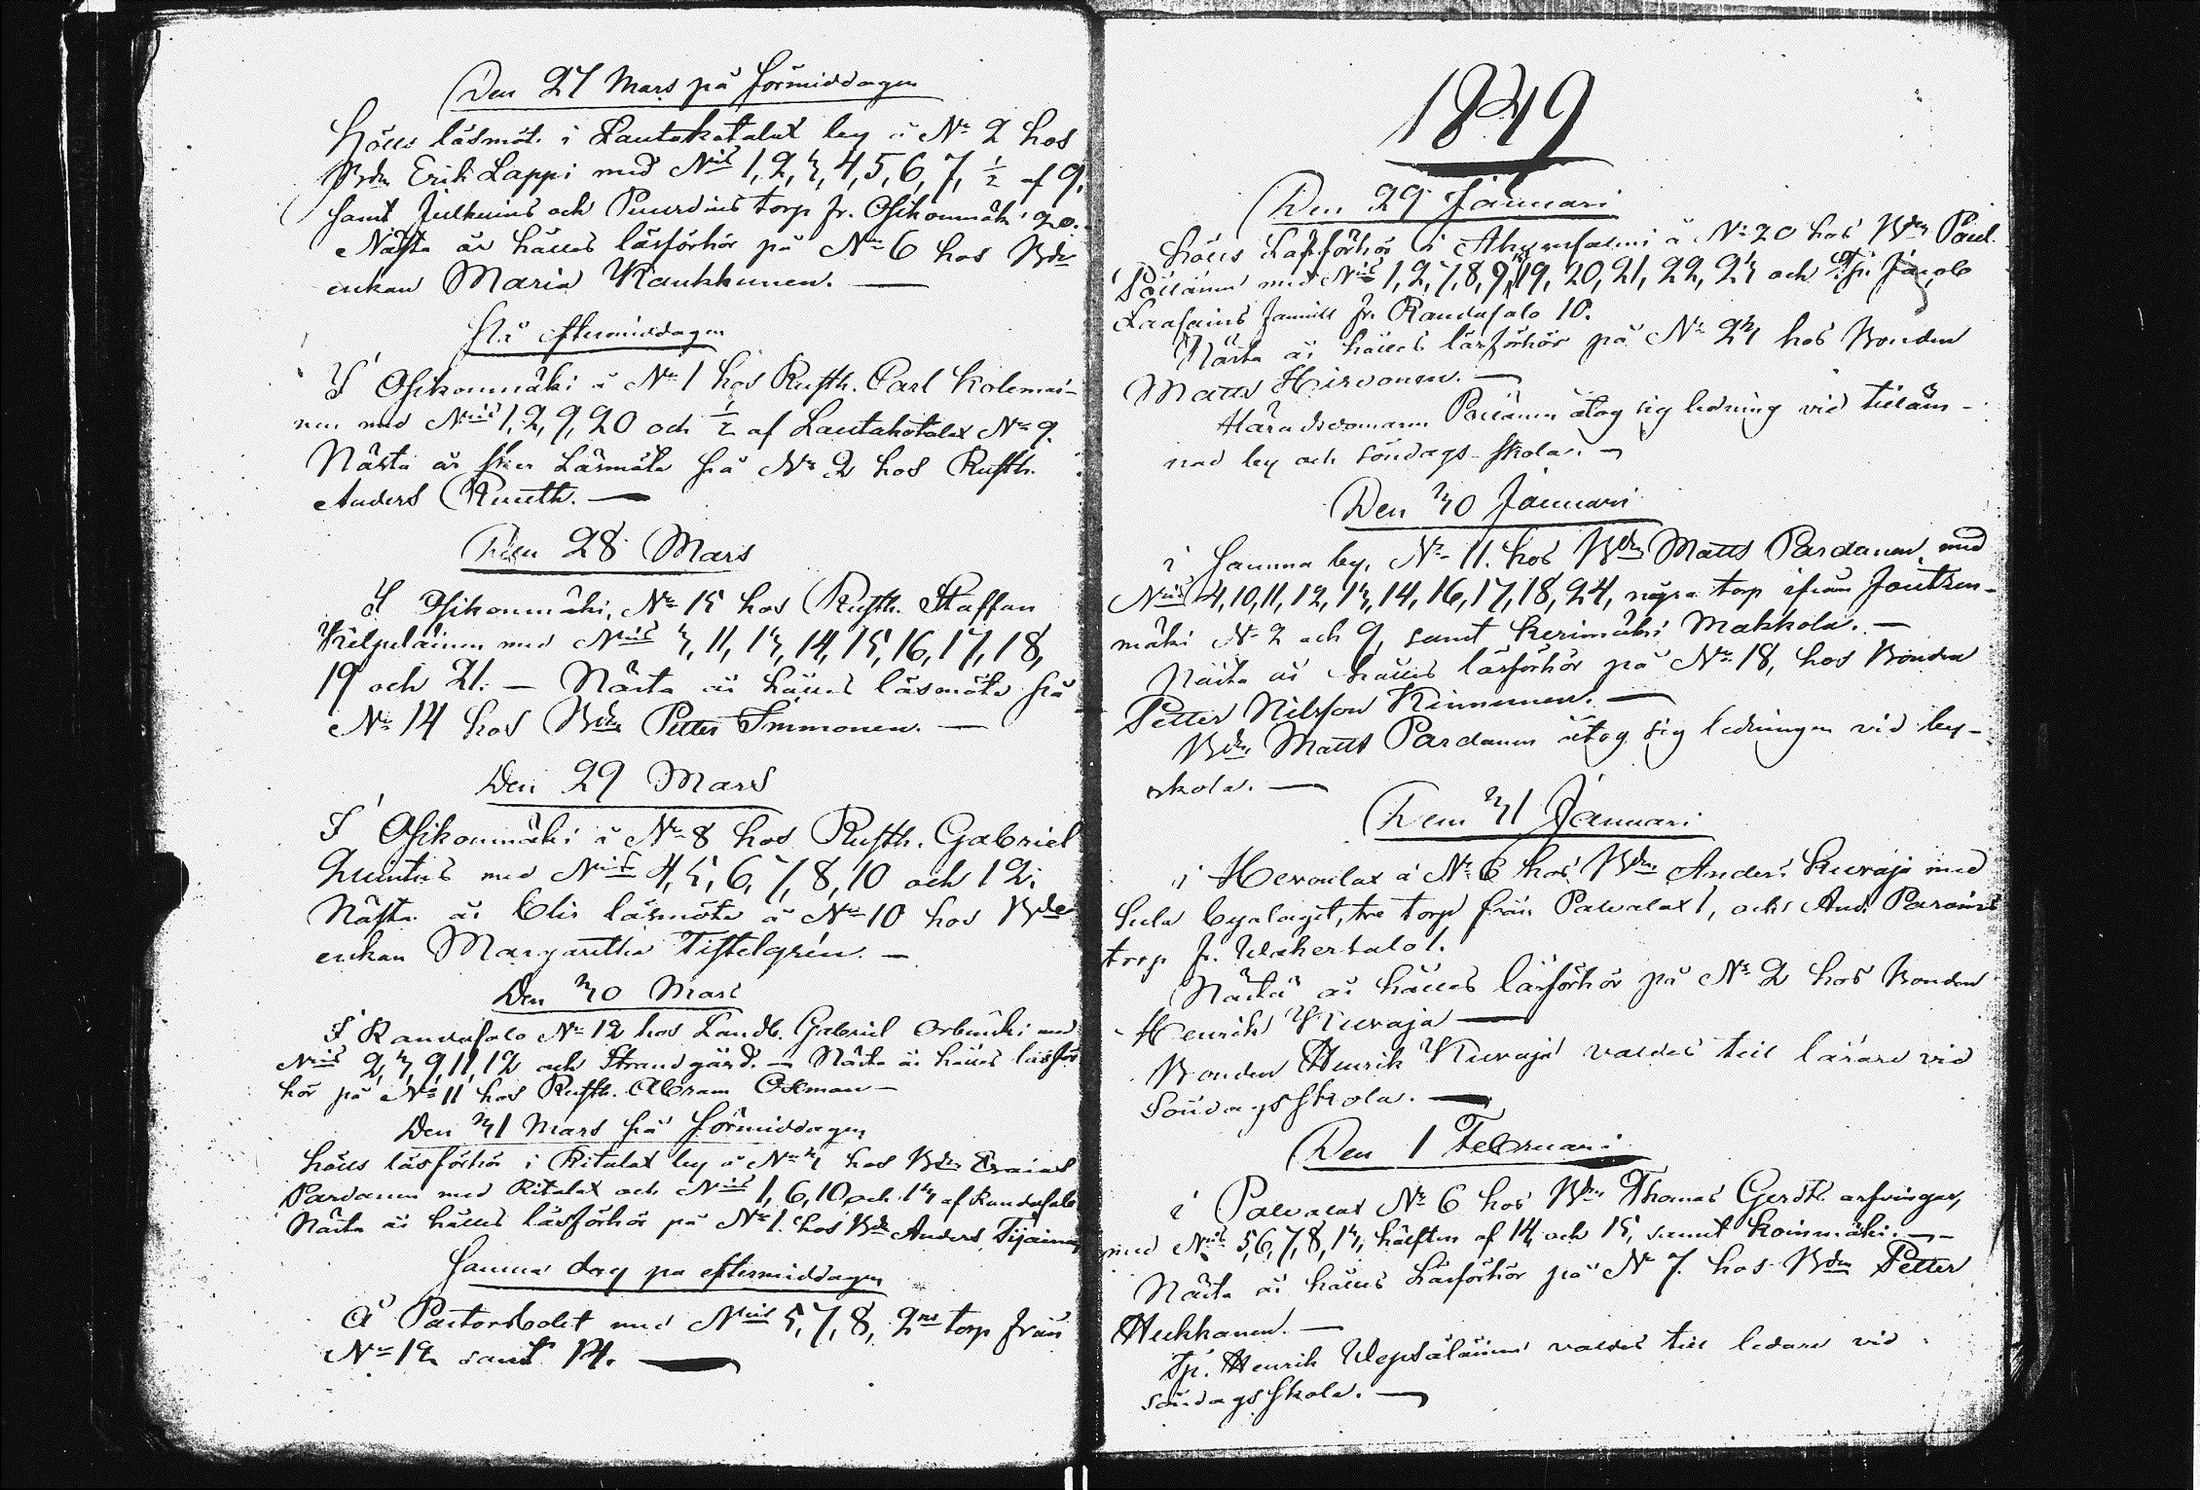 Den 27 Mars på förmiddagen
Hölls läsmöt. i Lautakotalax by å No 2 hos
Bdn Erik Lappi med Nris 1, 2, 3, 4, 5, 6, 7, ½ af 9,
samt Julkuins och Puurdins torp fr. Osikonmäki 20.
Nästa år hålles läsförhör på No 6 hos Bde
enkan Maria Kaukkunen. —
På eftermiddagen
I Osikonmäki å No 1 hos Rusth. Carl Kolemai-
nen med Nris 1, 2, 9, 20 och ½ af Lautakotalax No 9.
Nästa år sker Läsmöte på No 2 hos Rusth.
Anders Ruuth. —
Den 28 Mars
I Osikonmäki, No 15 hos Rusth. Staffan
med Nris 3, 11, 13, 14, 15, 16, 17, 18,
19 och 21. — Nästa år hålles läsmöte på
No 14 hos Bdn Petter Immonen. —
Den 29 Mars
I Osikonmäki å No 8 hos Rusth. Gabriel
Quintus med Nris 4, 5, 6, 7, 8, 10 och 12.
Nästa år blir läsmöte å No 10 hos Bde
enkan Margaretha Tistelgrén. —
Den 30 Mars
I Randasalo No 12 hos Landb. Gabriel med
Nris 2, 3, 9, 11, 12 och Strandgård. — Nästa år hålles läsför
hör på No 11 hos Rusth. Abram Oxman —
Den 31 Mars på förmiddagen
hölls läsförhör i Ritalax by å No 3 hos Bdn Esaias
Pardanen med Ritalax och Nris 1, 6, 10 och 13 af Randasalo
Nästa år hålles läsförhör på No 1. hos Bdn Anders Tijainen
Samma dag på eftermiddagen
Å Pastorsbolet med Nris 5, 7, 8, 2ne torp från
No 12 samt 14. —
1849
Den 29 Januari
Hölls Läsförhör i å No 20 hos Bdn Paul
Pöllänen med Nris 1, 2, 7, 8, 9, 19, 20, 21, 22, 23 och Tp. Jacob
Laasains familj fr. Randasalo 10.
Nästa år hålles läsförhör på No 23 hos Bonden
Matts Hirvonen. —
Häradsdomaren Pöllänen åtog sig ledning vid tilläm-
nad by och söndags-skola. —
Den 30 Januari
i samma by, No 11. hos Bdn Matts Pardanen med
Nris 4, 10, 11, 12, 13, 14, 16, 17, 18, 24, några torp ifrån Joutsen-
mäki No 2 och 9, samt Kerimäki Makkola. —
Nästa år hålles läsförhör på No 18, hos Bonden
Petter Nilsson Kinnunen. —
Bdn Matts Pardanen åtog sig ledningen vid by-
skola. —
Den 31 Januari
i Hevonlax å No 6 hos Bdn Anders Kuvaja med
hela byalaget, tre torp från Palvalax 1, och And. Paroins
torp fr. Wahersalo 1.
Nästa år hålles läsförhör på No 2 hos Bonden
Henrik Kuvaja —
Bonden Henrik Kuvaja valdes till lärare vid
Söndagsskola. —
Den 1 Februari
i Palvalax No 6 hos Bdn Thomas Gerdts arfvingar,
med Nris 5, 6, 7, 8, 13, hälften af 14 och 15, samt Koinmäki. —
Nästa år hålles Läsförhör på No 7. hos Bdn Petter
Heikkanen. —
Tp. Henrik Wepsäläinen valdes till ledare vid
söndagsskola. —